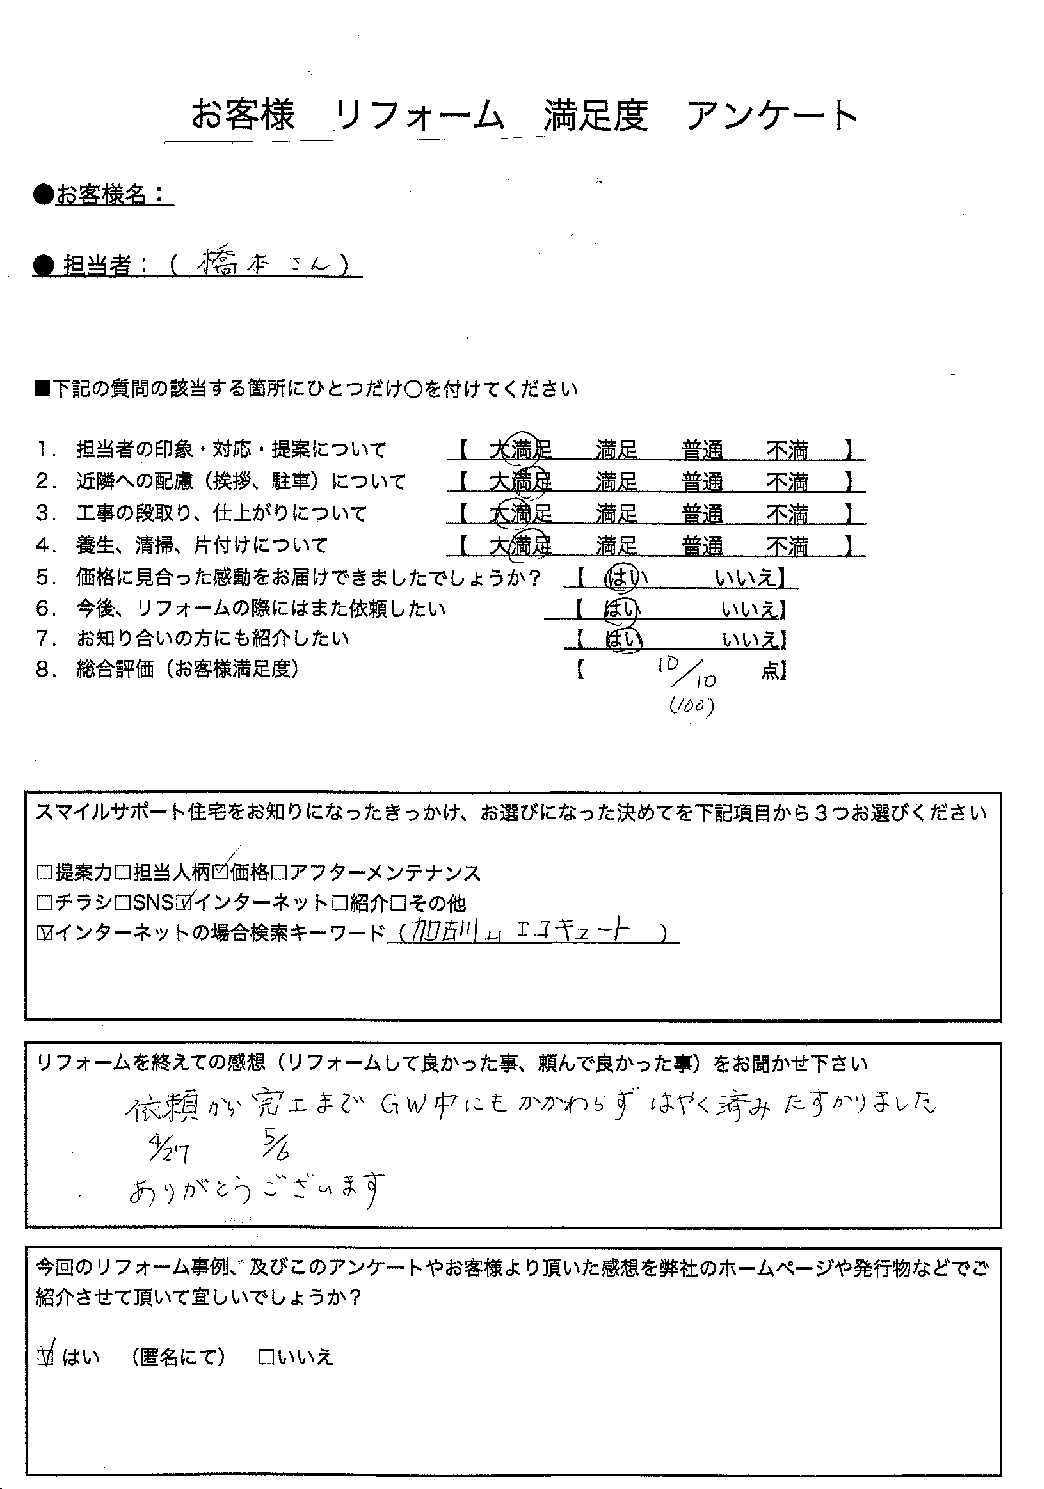 お客様　リフォーム　満足度　アンケート
●お客様名：
●担当者：（ 橋本さん ）
■下記の質問の該当する箇所にひとつだけ〇を付けてください
１．担当者の印象・対応・提案について　【　大満足　満足　普通　不満　】
２．近隣への配慮（挨拶、駐車）について　【　大満足　満足　普通　不満　】
３．工事の段取り、仕上がりについて　【　大満足　満足　普通　不満　】
４．養生、清掃、片付けについて　【　大満足　満足　普通　不満　】
５．価格に見合った感動をお届けできましたでしょうか？　【　はい　いいえ】
６．今後、リフォームの際にはまた依頼したい　【　はい　いいえ】
７．お知り合いの方にも紹介したい　【　はい　いいえ】
８．総合評価（お客様満足度）　【　10/10　点】
(100)
スマイルサポート住宅をお知りになったきっかけ、お選びになった決めてを下記項目から３つお選びください
□提案力□担当人柄☑価格□アフターメンテナンス
□チラシ□SNS☑インターネット□紹介□その他
☑インターネットの場合検索キーワード（加古川 エコキュート　）
リフォームを終えての感想（リフォームして良かった事、頼んで良かった事）をお聞かせ下さい
依頼から完工まで GW中にもかかわらず はやく済み たすかりました
4/27　5/6
ありがとうございます
今回のリフォーム事例、及びこのアンケートやお客様より頂いた感想を弊社のホームページや発行物などでご
紹介させて頂いて宜しいでしょうか？
☑はい　（匿名にて）　□いいえ